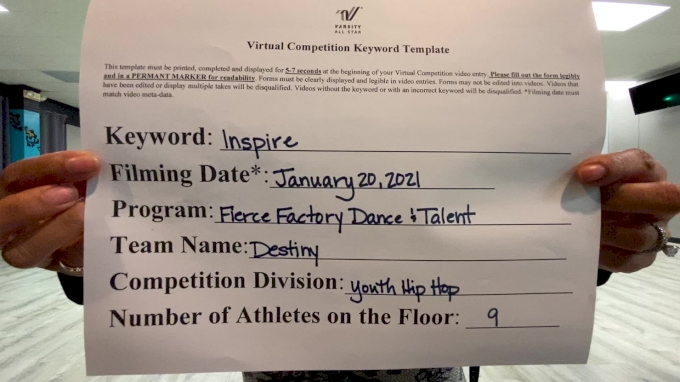 VARSITY
ALL STAR
Virtual Competition Keyword Template
This template must be printed, completed and displayed for 5-7 seconds at the beginning of your Virtual Competition video entry. Please fill out the form legibly
and in a PERMANT MARKER for readability. Forms must be clearly displayed and legible in video entries. Forms may not be edited into videos. Videos that
have been edited or display multiple takes will be disqualified. Videos without the keyword or with an incorrect keyword will be disqualified. *Filming date must
match video meta-data.
Keyword: Inspire
Filming Date*: January 20, 2021
Program: Fierce Factory Dance & Talent
Team Name: Destiny
Competition Division: Youth Hip Hop
Number of Athletes on the Floor: 9